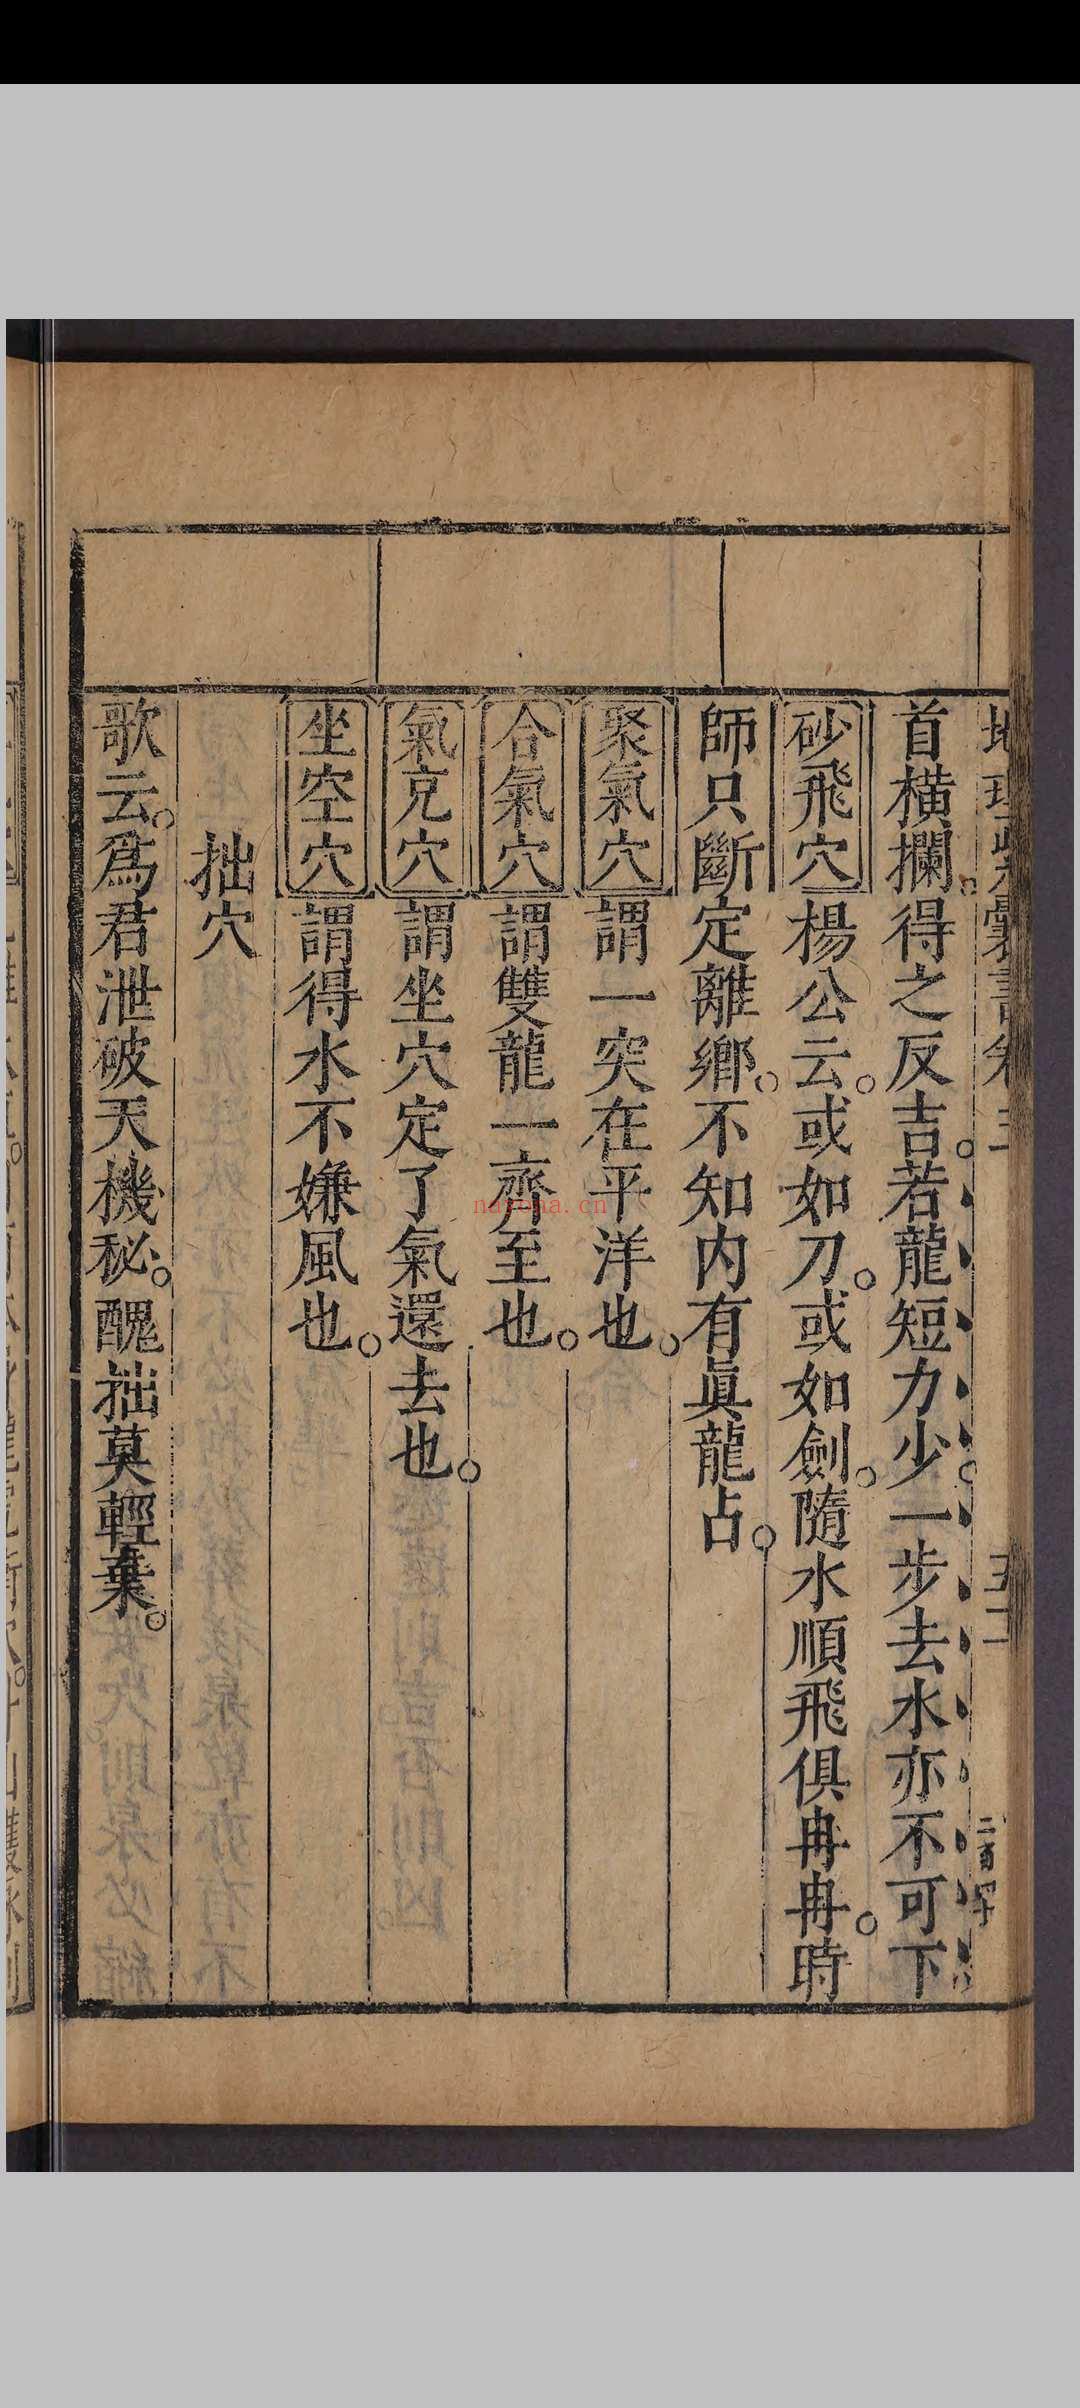 首橫攔。得之反吉。若龍短力少。一步去水亦不可下
砂飛穴 楊公云。或如刀。或如劍。隨水順飛俱冉冉。時
師只斷定離鄉。不知內有眞龍占。
聚氣穴 謂一突在平洋也。
合氣穴 謂雙龍一齊至也。
氣克穴 謂坐穴定了氣還去也。
坐空穴 謂得水不嫌風也。
拙穴
歌云。爲君泄破天機秘。醜拙莫輕棄。
nayona.cn